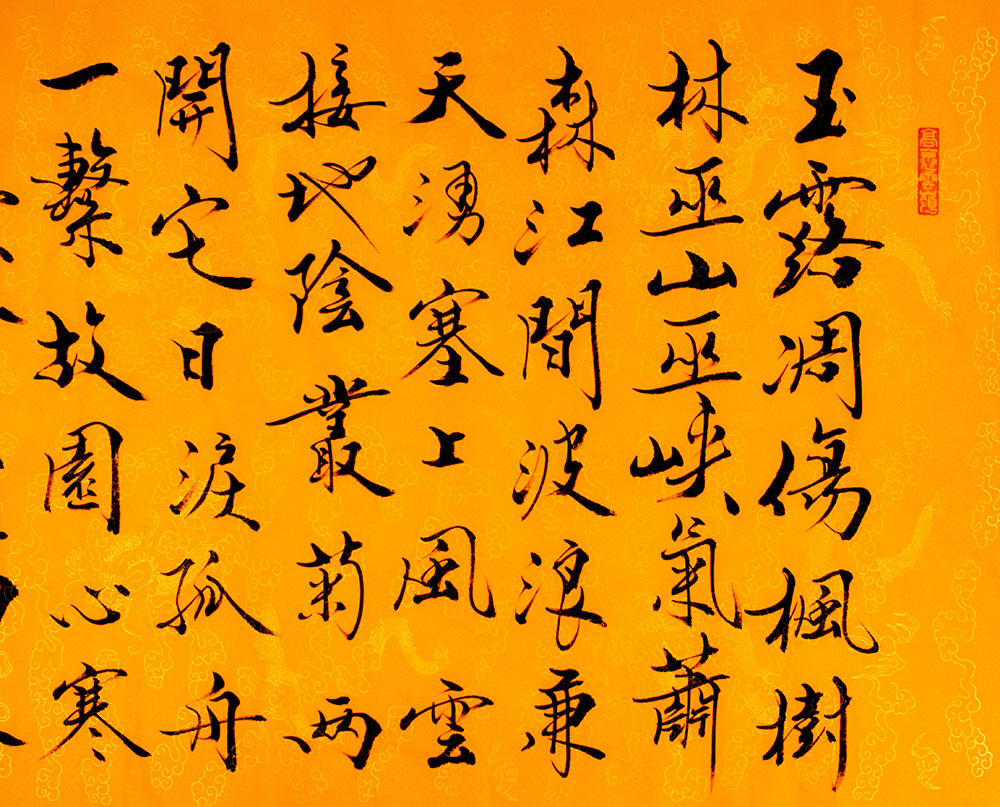 玉露凋傷楓樹
林巫山巫峽氣蕭
森江間波浪兼
天湧塞上風雲
接地陰叢菊两
開它日淚孤舟
一繫故園心寒